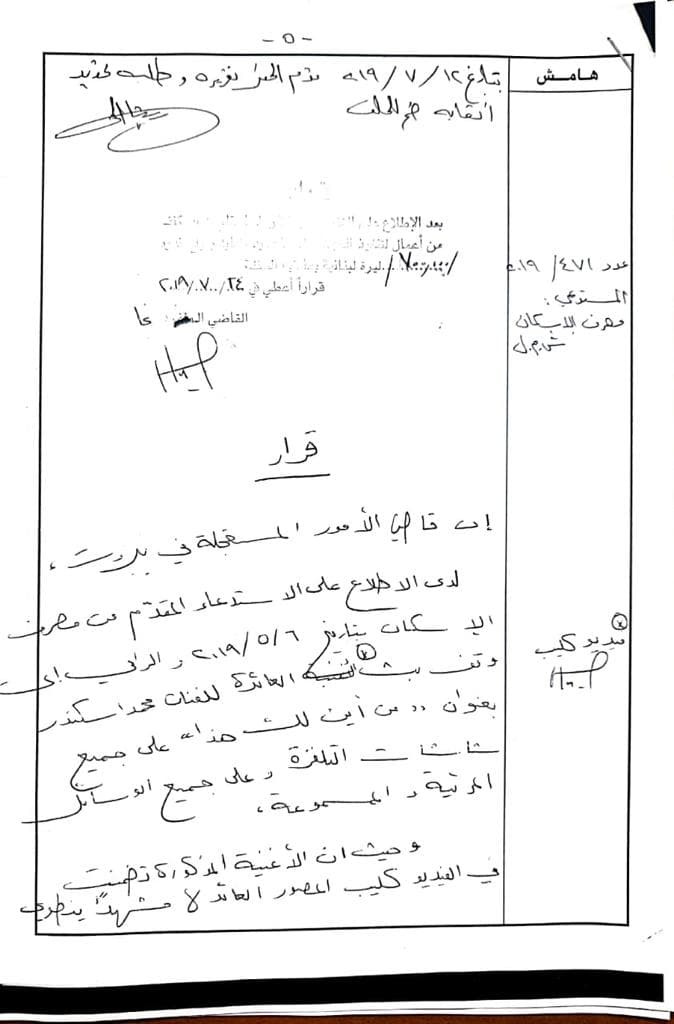 - ٥ -
هامش
بتاريخ ١٢/٧/٢٠١٩ قدم الخبير تقريره وطلب تحديد
أتعابه
بعد الإطلاع على
من أعمال لتنفيذ
/٧٠٠,٠٠٠/ ليرة لبنانية
قراراً أعطي في ٢٤/٠٧/٢٠١٩
القاضي
عدد ٤٧١/٢٠١٩
المستدعي:
مصرف الإسكان
ش.م.ل
قرار
إن قاضي الأمور المستعجلة في بيروت،
لدى الاطلاع على الاستدعاء المقدّم من مصرف
الإسكان بتاريخ ٦/٥/٢٠١٩ والرامي إلى
وقف بث العائدة للفنان محمد اسكندر
فيديو كليب
بعنوان "من أين لك هذا" على جميع
شاشات التلفزة وعلى جميع الوسائل
المرئية والمسموعة،
وحيث ان الأغنية المذكورة تضمنت
في الفيديو كليب المصور العائد لا مشهداً ينطوي